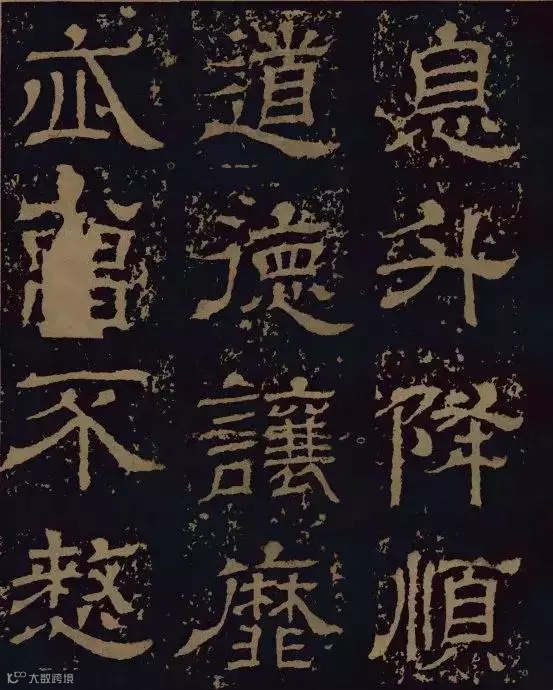 息升降順
道德讓靡
亦不
大数跨境